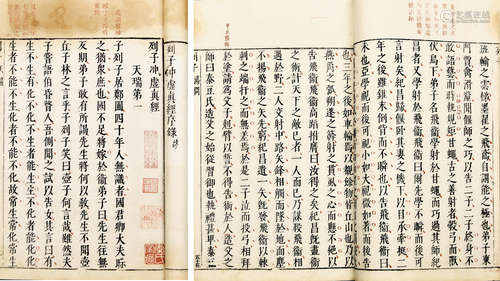 班輸之雲梯墨翟之飛鳶自謂能之極也弟子東
門賈禽滑釐聞偃師之巧以告二子二子終身不
敢語藝而時執規矩甘蠅古之善射者彀弓而獸
伏鳥下弟子名飛衛學射於甘蠅而巧過其師紀
昌者又學射於飛衛飛衛曰爾先學不瞬而後可
言射矣紀昌歸偃臥其妻之機下以目承牽挺二
年之後雖錐末倒眥而不瞬也以告飛衛飛衛曰
未也亞學視而後可視小如大視微如著而後告
也三年之後如車輪焉以覩餘物皆丘山也乃以
燕角之弧朔蓬之簳射之貫虱之心而懸不絕以
告飛衛飛衛高蹈拊膺曰汝得之矣紀昌既盡衛
之術計天下之敵己者一人而已乃謀殺飛衛相
遇於野二人交射中路矢鋒相觸而墜於地而塵
不揚飛衛之矢先窮紀昌遺一矢既發飛衛以棘
刺之端扞之而無差焉於是二子泣而投弓相拜
於塗請爲父子尅臂以誓不得告術於人造父之
師曰泰豆氏造父之始從習御也執禮甚卑泰豆
列子冲虛真經序錄終
列子冲虛真經
天瑞第
子列子居鄭圃四十年人無識者國君卿大夫眎
之猶衆庶也國不足將嫁於衛弟子曰先生往無
反期弟子敢有所謁先生將何以教先生不聞壺
丘子林之言乎子列子笑曰壺子何言哉雖然夫
子嘗語伯昏瞀人吾側聞之試以告女其言曰有
生不生有化不化不生者能生生不化者能化化
生者不能不生化者不能不化故常生常化常生